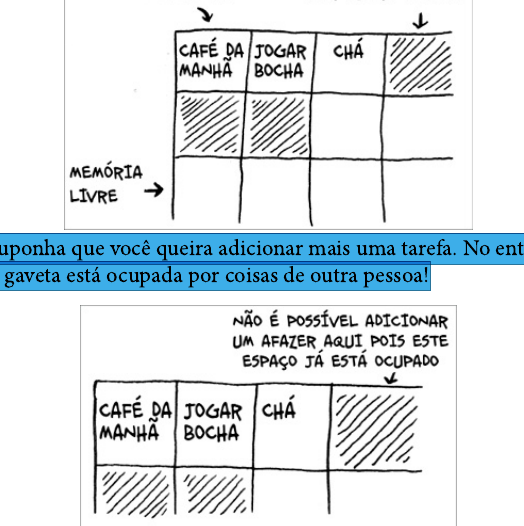 CAFÉ DA MANHÃ
JOGAR BOCHA
CHÁ
MEMÓRIA
LIVRE
uponha que você queira adicionar mais uma tarefa. No ent
gaveta está ocupada por coisas de outra pessoa!
NÃO É POSSÍVEL ADICIONAR
UM AFAZER AQUI POIS ESTE
ESPAÇO JÁ ESTÁ OCUPADO
CAFÉ DA MANHÃ
JOGAR BOCHA
CHÁ